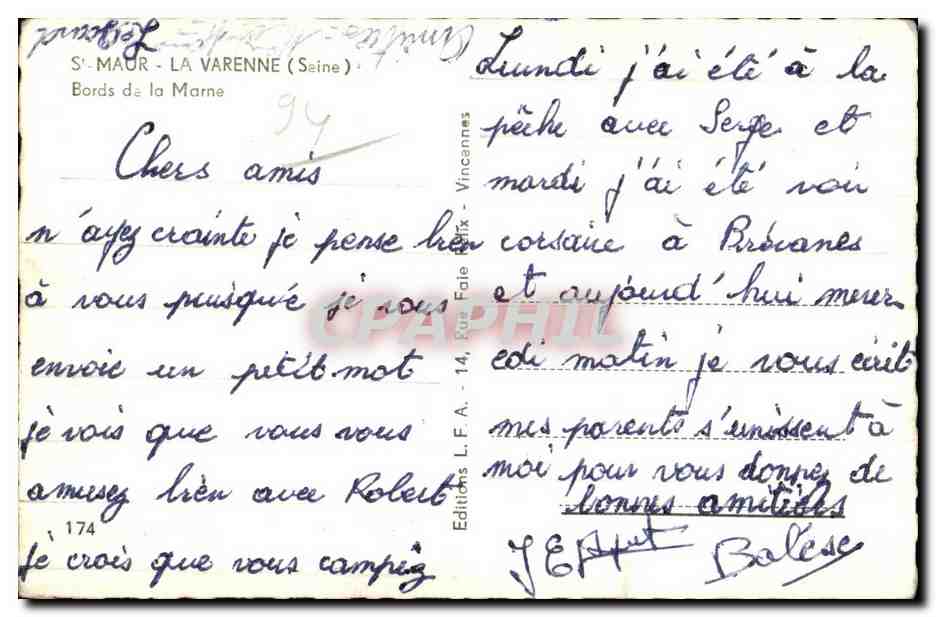 Amitiés
St-MAUR - LA VARENNE (Seine)
Bords de la Marne
94
Chers amis
n'ayez crainte je pense bien
à vous puisqu'e je vous
envoie un petit mot
je vois que vous vous
amusez bien avec Robert
174
je crois que vous campez
Editions L. F. A. - 14, Rue Faie Félix - Vincennes
CPAPHIL
Lundi j'ai été à la
pêche avec Serge et
mardi j'ai été voir
corsaire à Brévanes
et aujourd'hui mercr
edi matin je vous écrit
mes parents s'unissent à
moi pour vous donnez de
bonnes amitiées